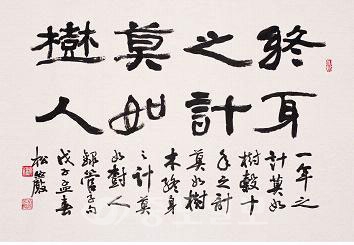 終身
之計
莫如
樹人
一年之
計莫如
樹穀十
年之計
莫如樹
木終身
之計莫
如樹人
錄管子句
戊子孟春
松巖